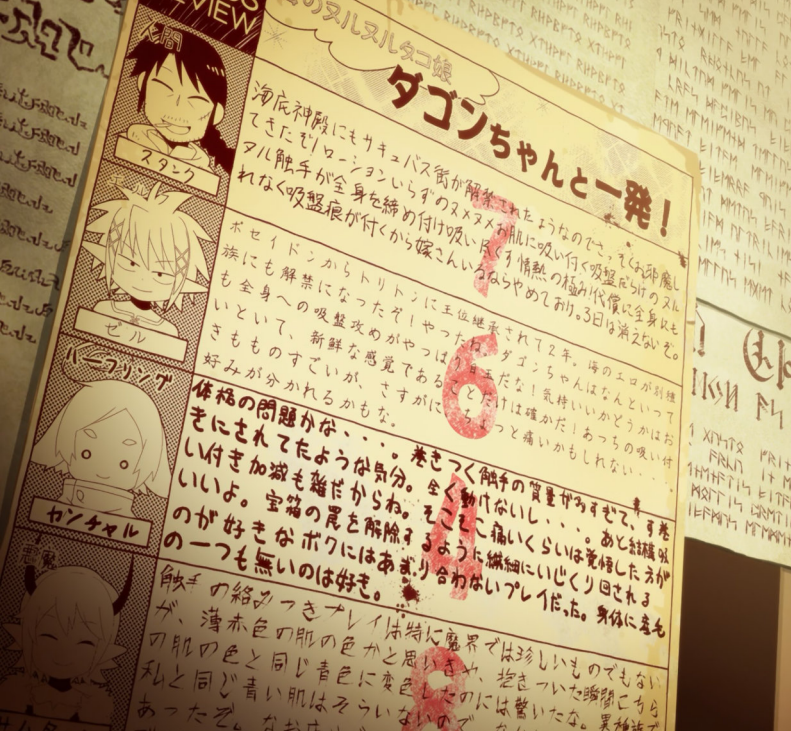 REVIEW
海のヌルヌルタコ娘
ダゴンちゃんと一発！
人間
スタンク
海底神殿にもサキュバス街が解禁されたようなのでさっそくお邪魔し
てきたぞ!ローションいらずのヌメヌメお肌に吸い付く吸盤だらけのヌル
ヌル触手が全身を締め付け吸い尽くす情熱の極み!代償に全身にも
れなく吸盤痕が付くから嫁さんいるならやめておけ。3日は消えないぞ。
7
エルフ
ゼル
ポセイドンからトリトンに王位継承されて2年。海のエロが別種
族にも解禁になったぞ！やったね。ダゴンちゃんはなんといって
も全身への吸盤攻めがやっぱり目玉だな！気持いいかどうかはお
いといて、新鮮な感覚であることだけは確かだ！あっちの吸い付
きものすごいが、さすがにちょっと痛いかもしれない...
好みが分かれるかもな。
6
ハーフリング
カンチャル
体格の問題かな...。巻きつく触手の質量がありすぎて、す巻
きにされてたような気分。全く動けないし...。あと結構吸
い付き加減も雑だからね。そこそこ痛いくらいは覚悟した方が
いいよ。宝箱の罠を解除するように繊細にいじくり回される
のが好きなボクにはあまり合わないプレイだった。身体に産毛
の一つも無いのは好き。
4
悪魔
触手の絡みつきプレイは特に魔界では珍しいものでもない
が、薄赤色の肌の色かと思いきや、抱きついた瞬間こちら
の肌の色と同じ青色に変色したのには驚いたな。異種族で
私と同じ青い肌はそういないので
あったぞ。なお
8